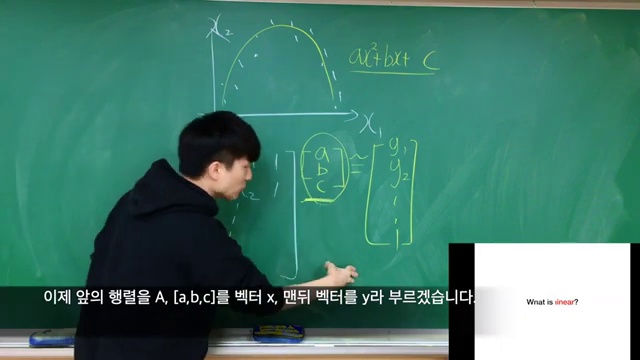 x₂
ax²+bx+ c
x₁
1
1
2
[a
b
c]
≅
[y₁
y₂
이제 앞의 행렬을 A, [a,b,c]를 벡터 x, 맨뒤 벡터를 y라 부르겠습니다.
What is linear?